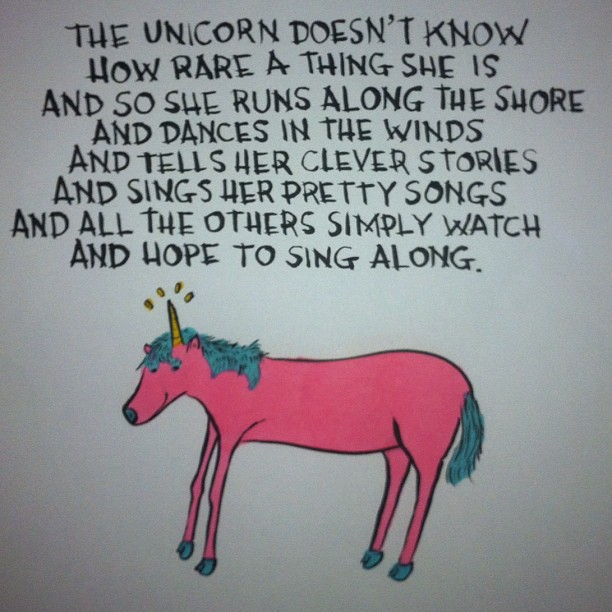 THE UNICORN DOESN'T KNOW
HOW RARE A THING SHE IS
AND SO SHE RUNS ALONG THE SHORE
AND DANCES IN THE WINDS
AND TELLS HER CLEVER STORIES
AND SINGS HER PRETTY SONGS
AND ALL THE OTHERS SIMPLY WATCH
AND HOPE TO SING ALONG.